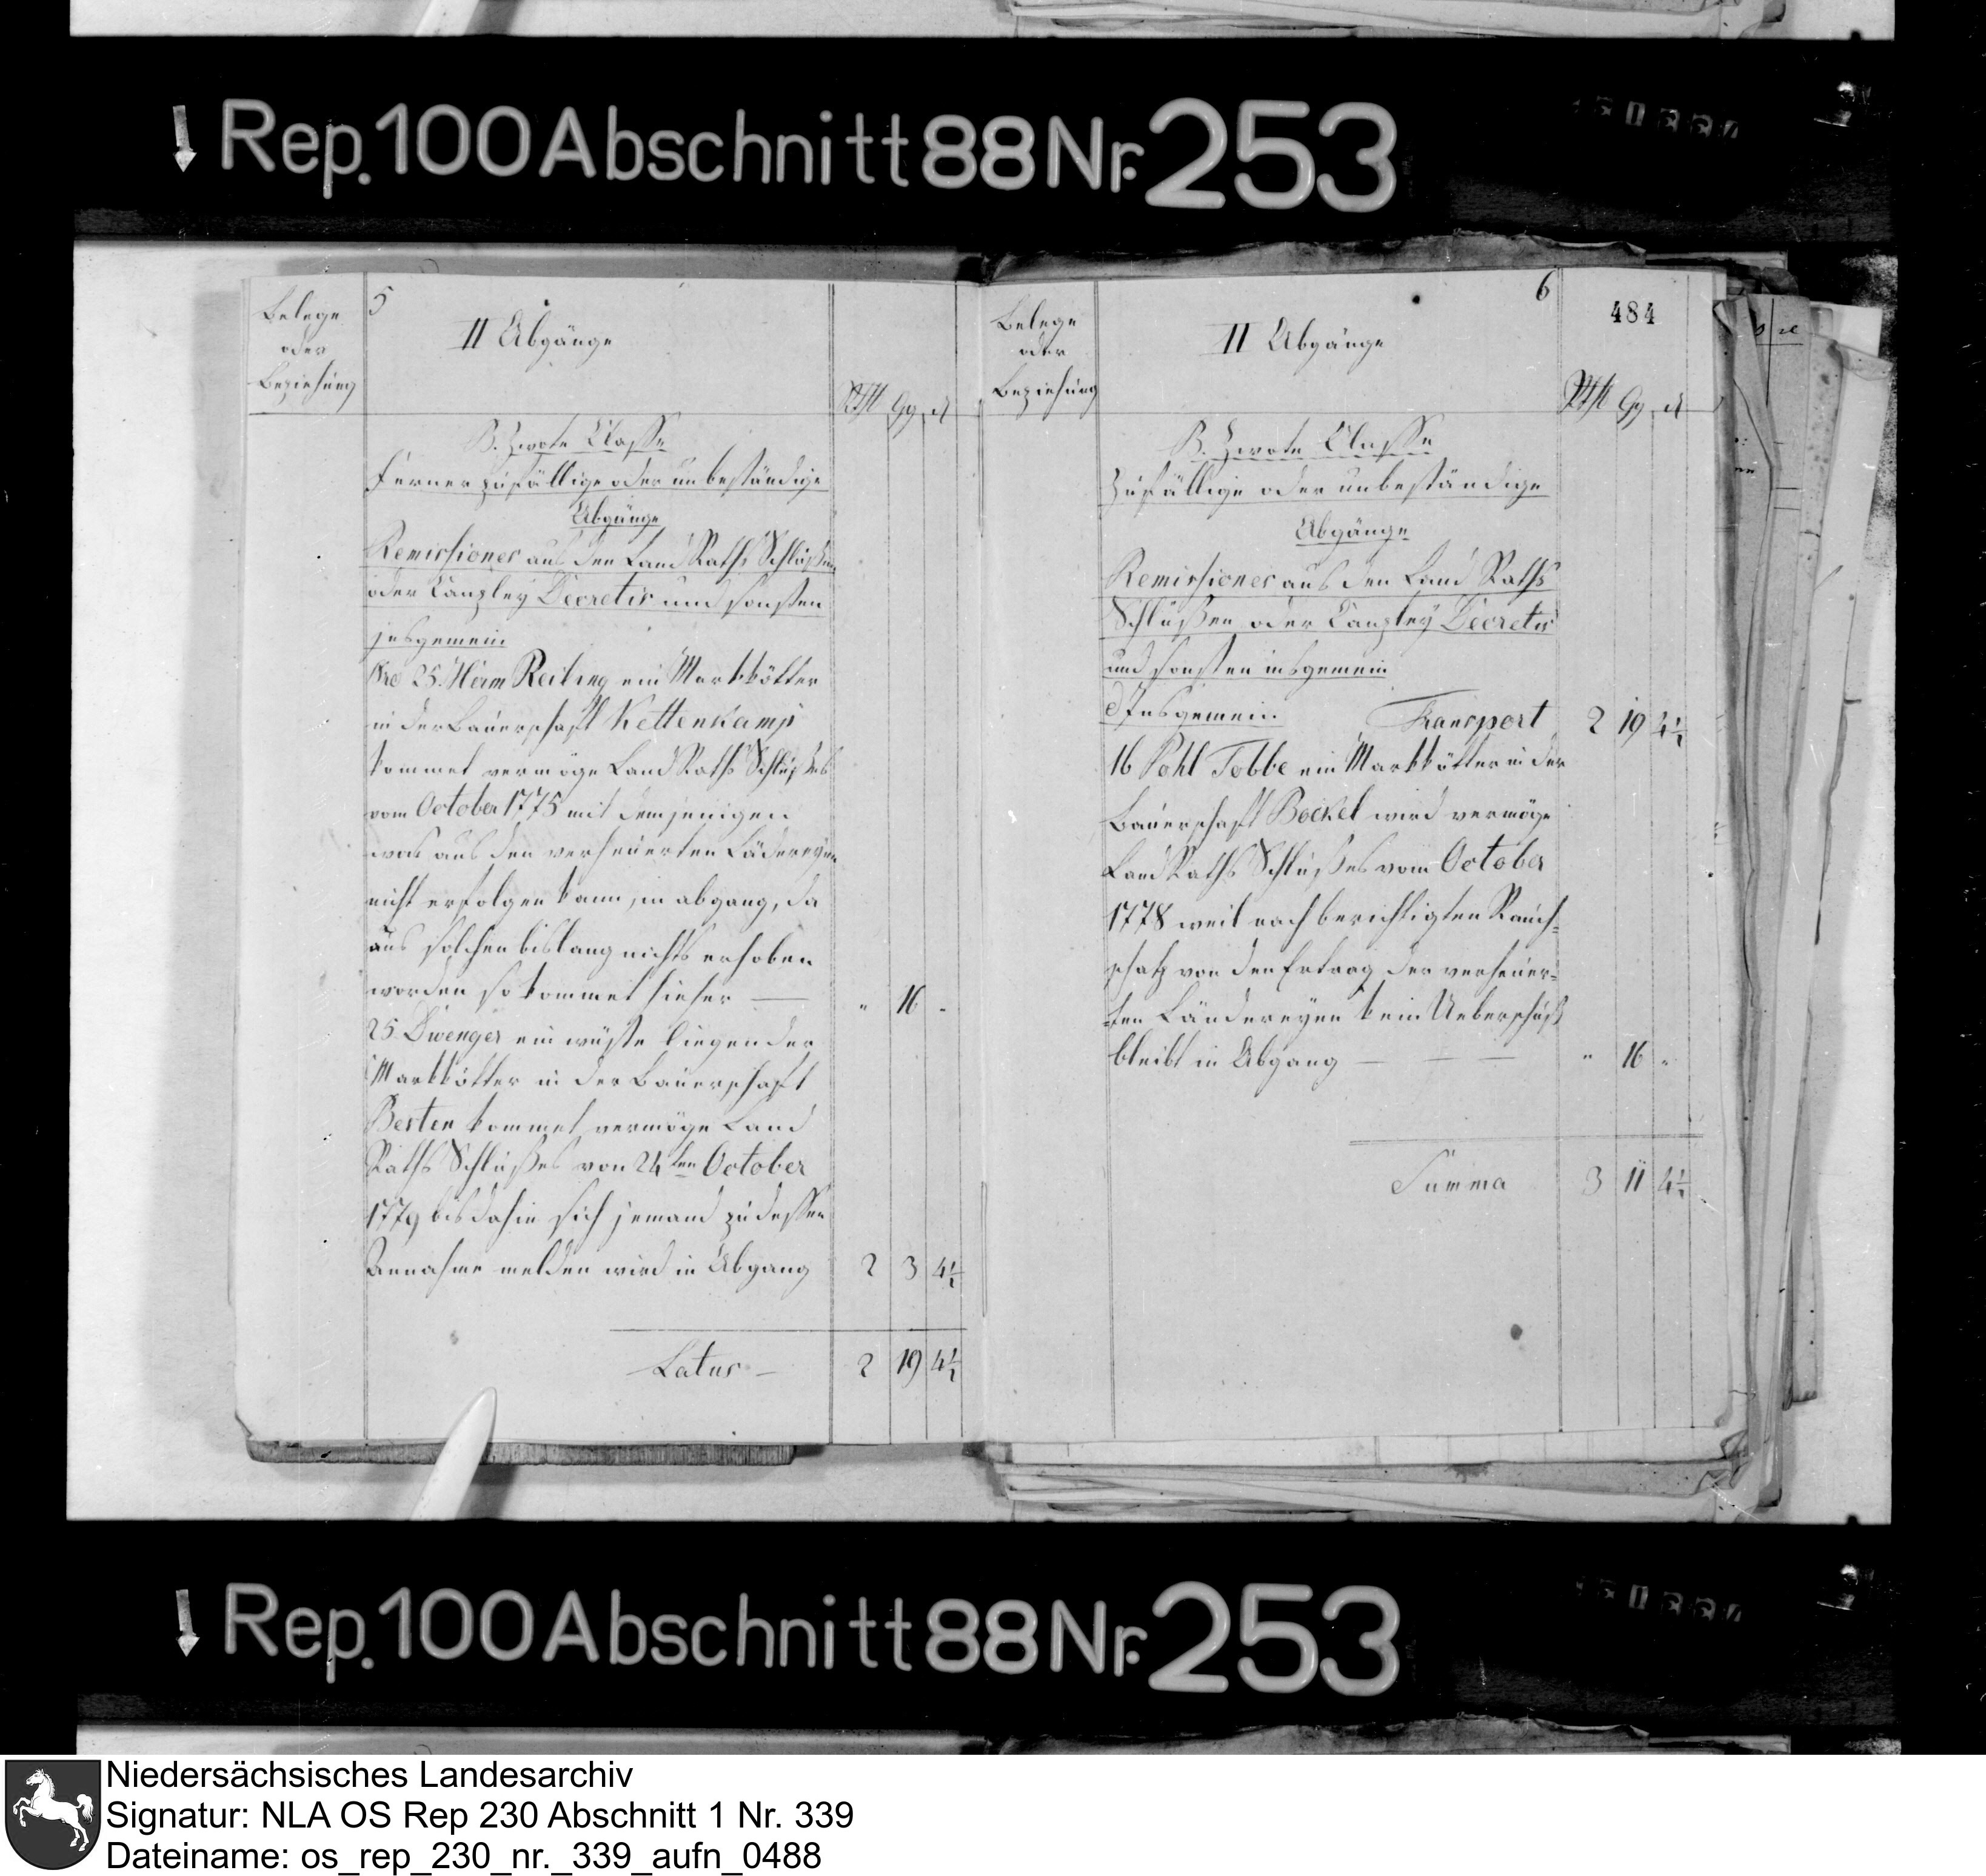 ↓ Rep. 100 Abschnitt 88 Nr. 253
Belege
oder
Beziehung
5
II Abgänge
Rthl Gg. d
B. Zwote Classe
Ferner zufällige oder unbeständige
Abgänge
Remissiones aus den Land Raths Schlüßen
oder Canzley Decretis und sonsten
insgemein
Nro 25. Herm Reiling ein Markkötter
in der Bauerschaft Kettenkamp
kommet vermöge Land Raths Schlußes
vom October 1775 mit demjenigen
was aus den verheuerten Lädereyen
nicht erfolgen kann, in abgang, da
aus solchen bislang nichts erhoben
worden so kommet hieher — " 16 -
25 Dwenger ein wüste liegender
Markkötter in der Bauerschaft
Besten kommet vermöge Land
Raths Schlußes von 24ten October
1779 bis dahin sich jemand zu dessen
Annahme melden wird in Abgang 2 3 4½
Latus — 2 19 4½
Belege
oder
Beziehung
6
484
II Abgänge
Rthl Gg. d
B. Zwote Classe
Zufällige oder unbeständige
Abgänge
Remissiones aus den Land Raths
Schlüßen oder Canzley Decretis
und sonsten insgemein
Insgemein Transport 2 19 4½
16 Pohl Tobbe ein Markkötter in der
Bauerschaft Bockel wird vermöge
Land Raths Schlußes vom October
1778 weil nach berichtigten Rauch=
schatz von den Ertrag der verheuer=
=ten Ländereyen kein Ueberschuß
bleibt in Abgang — — — " 16 -
Summa 3 11 4½
↓ Rep. 100 Abschnitt 88 Nr. 253
Niedersächsisches Landesarchiv
Signatur: NLA OS Rep 230 Abschnitt 1 Nr. 339
Dateiname: os_rep_230_nr._339_aufn_0488